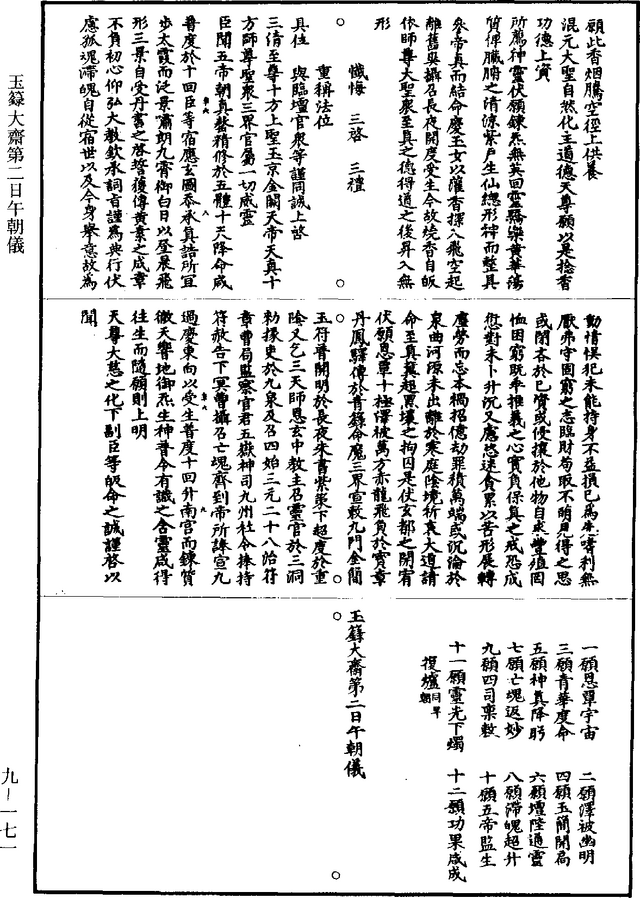 願此香烟騰空徑上供養
混元大聖自然化主道德天尊願以是捻香
功德上資
所薦神靈伏願鍊炁無英回靈騶樂黃華蕩
質俾臟腑之清涼紫戶生仙總形神而整具
參帝真而結命慶玉女以灌香探八飛空起
離舊吳攝召長夜開度受生今故燒香自皈
依師尊大聖衆至真之德得道之後昇入無
形
懺悔 三啓 三禮
重稱法位
具位 與臨壇官衆等謹同誠上啓
三清至尊十方上聖玉京金闕天帝天真十
方師尊聖衆三界官屬一切威靈
臣聞五帝朝真齋精修於五體十天降命咸
普度於十回臣等宿應玄圖忝承真誥所宜
步太霞而泛景嘯朗九霄御白日以登晨飛
形三景自受丹書之啓誓獲傳黃素之成章
不負初心仰弘大教欽承詞旨謹爲典行伏
慮孤魂滯魄自從宿世以及今身舉意故爲
動情悞犯未能持身不益損已爲先嗜利無
厭弗守固窮之志臨財苟取不萌見得之思
或閉吝於已實或侵攘於他物自求豐殖罔
恤困窮既乖推義之心實負保真之戒忽成
愆對未卜升沉又應愁迷貪累以苦形展轉
塵勞而忘本禍招億劫罪積萬端或沉淪於
泉曲河源未出離於寒庭陰境祈哀大道請
命至真冀超黑壤之拘囚是伏玄都之開宥
伏願恩覃十極澤被萬方赤龍飛負於寶章
丹鳳驛傳於青籙命魔三界宣敕九門金簡
玉符普開明於長夜朱書紫策下超度於重
陰又乞三天師恩玄中教主召靈官於三洞
勑掾吏於九泉及召四始三元二十八治符
章曹局監察官君五嶽神司九州社令捧持
符赦告下冥曹攝召亡魂齊到帝所誄宣九
過慶東向以受生普度十回升南宮而鍊質
徹天響地御炁生神普今有識之含靈咸得
往生而隨願則上明
天尊大慈之化下副臣等皈命之誠謹啓以
聞
一願恩覃宇宙 二願澤被幽明
三願青華度命 四願玉簡開局
五願神真降眄 六願壇陛通靈
七願亡魂返妙 八願滯魄超升
九願四司稟敕 十願五帝監生
十一願靈光下燭 十二願功果咸成
復爐同早朝
玉籙大齋第二日午朝儀
玉籙大齋第二日午朝儀
九—一七一